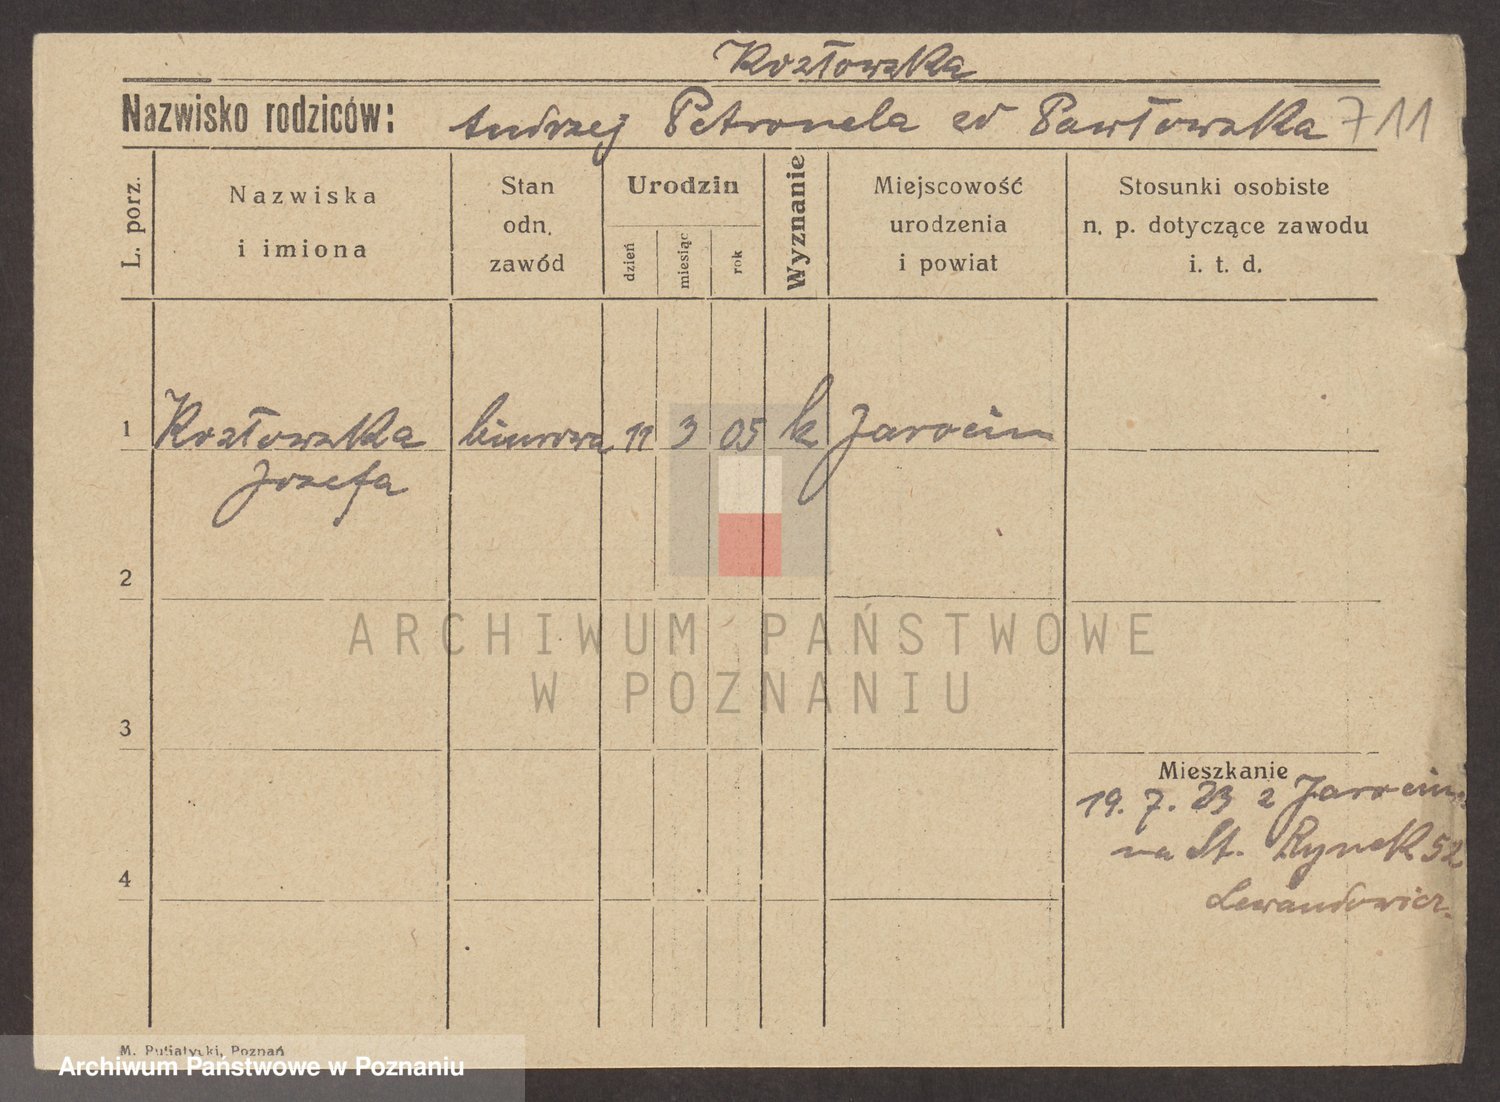 Kozłowska
Nazwisko rodziców: Andrzej Petronela zd Pawłowska 711
L. porz.
Nazwiska
i imiona
Stan
odn.
zawód
Urodzin
dzień
miesiąc
rok
Wyznanie
Miejscowość
urodzenia
i powiat
Stosunki osobiste
n. p. dotyczące zawodu
i. t. d.
1 Kozłowska biurowa 11 3 05 k Jarocin
Jozefa
2
ARCHIWUM PAŃSTWOWE
W POZNANIU
3
Mieszkanie
19. 7. 23 z Jarocin
na St. Rynek 52
4
Lewandowicz.
M. Putiatycki, Poznań
Archiwum Państwowe w Poznaniu